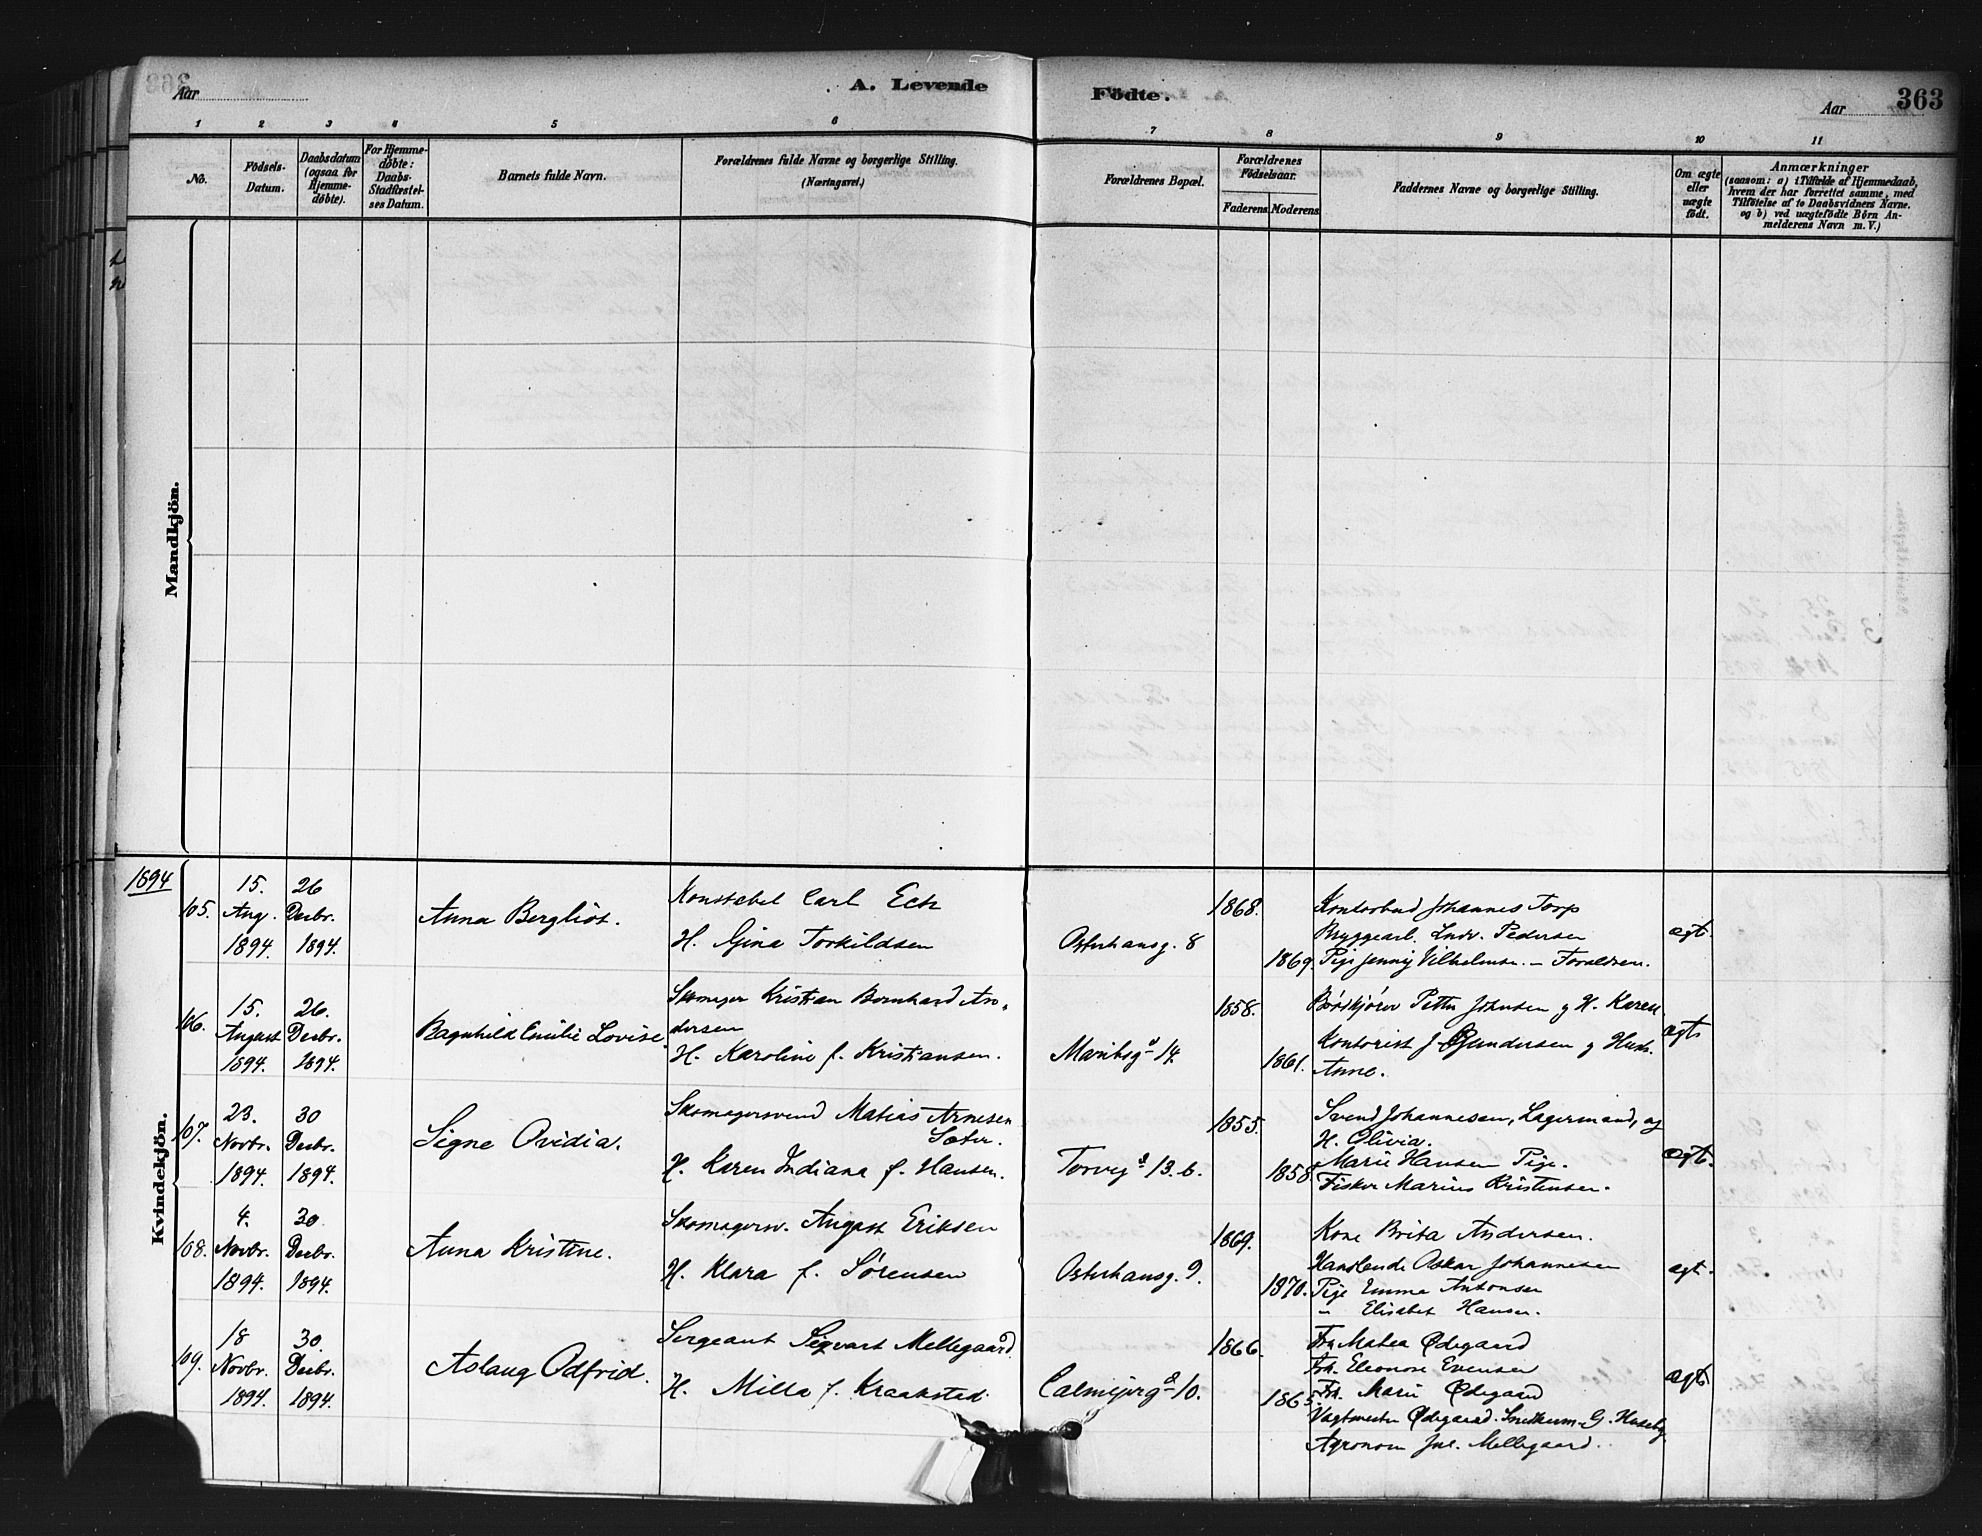 Aar
A. Levende
Födte.
Aar
363
1 2 3 4 5 6 7 8 9 10 11
No.
Födsels-
Datum.
Daabsdatum
(ogsaa for
Hjemme-
døbte).
For Hjemme-
døbte:
Daabs-
Stadfæstel-
ses Datum.
Barnets fulde Navn.
Forældrenes fulde Navne og borgerlige Stilling.
(Næringsvei.)
Forældrenes Bopæl.
Forældrenes
Fødselsaar.
Faderens Moderens
Faddernes Navne og borgerlige Stilling.
Om ægte
eller
uægte
født.
Anmærkninger
(saasom: a) i Tilfælde af Hjemmedaab,
hvem der har forrettet samme, med
Tilføielse af to Daabsvidners Navne.
og b) ved uægtefødte Børn An-
melderens Navn m. V.)
Mandkjön.
Kvindekjön.
1894
105.
15.
Aug.
1894.
26
Decbr.
1894.
Anna Bergliot.
Konstabel Carl Eck
H. Gina Torkildsen
Osterhausg. 8
1868.
1869.
Kontorbud Johannes Torp
Bryggearb. Lndv. Pedersen
Pige Jenny Vilhelmsen. – Forældren.
ægt.
106.
15.
August
1894.
26.
Decbr.
1894.
Ragnhild Emilie Lovise
Skomager Kristian Bernhard An-
dersen
H. Karoline f. Kristiansen.
Maribog 14.
1858.
1861.
Petter Johnsen g H. Karen
Kontorist J. Gundersen g Hustr.
Anne.
ægt
107.
23.
Novbr.
1894.
30
Decbr.
1894.
Signe Ovidia.
Skomagersvend Matias Arnesen
Sæter.
H. Karen Indiana f. Hansen.
Torvg 13.b.
1855.
1858.
Svend Johannesen, Lagermand, og
H. Olivia.
Marie Hansen Pige.
Fisker Marius Kristensen.
ægt.
108.
4.
Novbr.
1894.
30.
Decbr.
1894.
Anna Kristine.
Skomagersv. August Eriksen
H. Klara f. Sørensen
Osterhausg. 9.
1869.
1870.
Kone Brita Andersen.
Handlende Oskar Johannesen
Pige Emma Antonsen
" Elisabet Hansen.
ægt.
109.
18
Novbr.
1894.
30.
Decbr.
1894.
Aslaug Odfrid.
Sergeant Sigvart Mellegaard.
H. Milla f. Kraakstad.
Calmeyerg 10.
1866.
1865.
Fru Matea Ødegaard
Frk. Eleonore Evensen
Fr. Marie Ødegaard
Vagtmester Ødegaard. G. Huseby
Agronom Jul. Mellegaard.
ægt